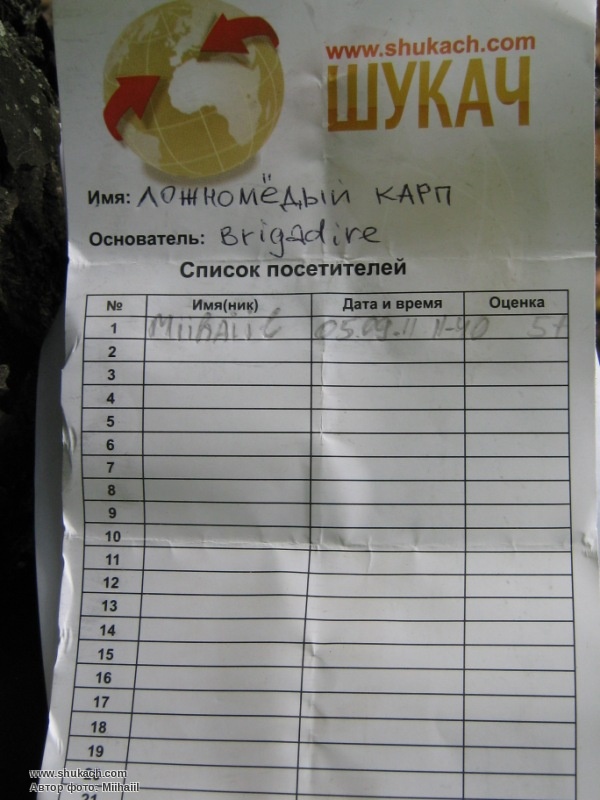 www.shukach.com
ШУКАЧ
Имя: ЛОЖНОМЁДЫЙ КАРП
Основатель: Brigadire
Список посетителей
№ Имя(ник) Дата и время Оценка
1 MiiHAiiL 05.09.11 11-40 5+
2
3
4
5
6
7
8
9
10
11
12
13
14
15
16
17
18
19
20
21
www.shukach.com
Автор фото: Miihaiil